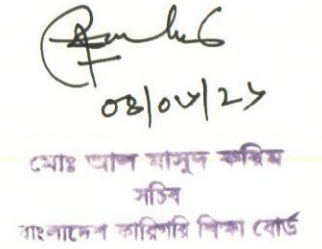 ০৪/০৮/২১
মোঃ আল মাসুদ করিম
সচিব
বাংলাদেশ কারিগরি শিক্ষা বোর্ড